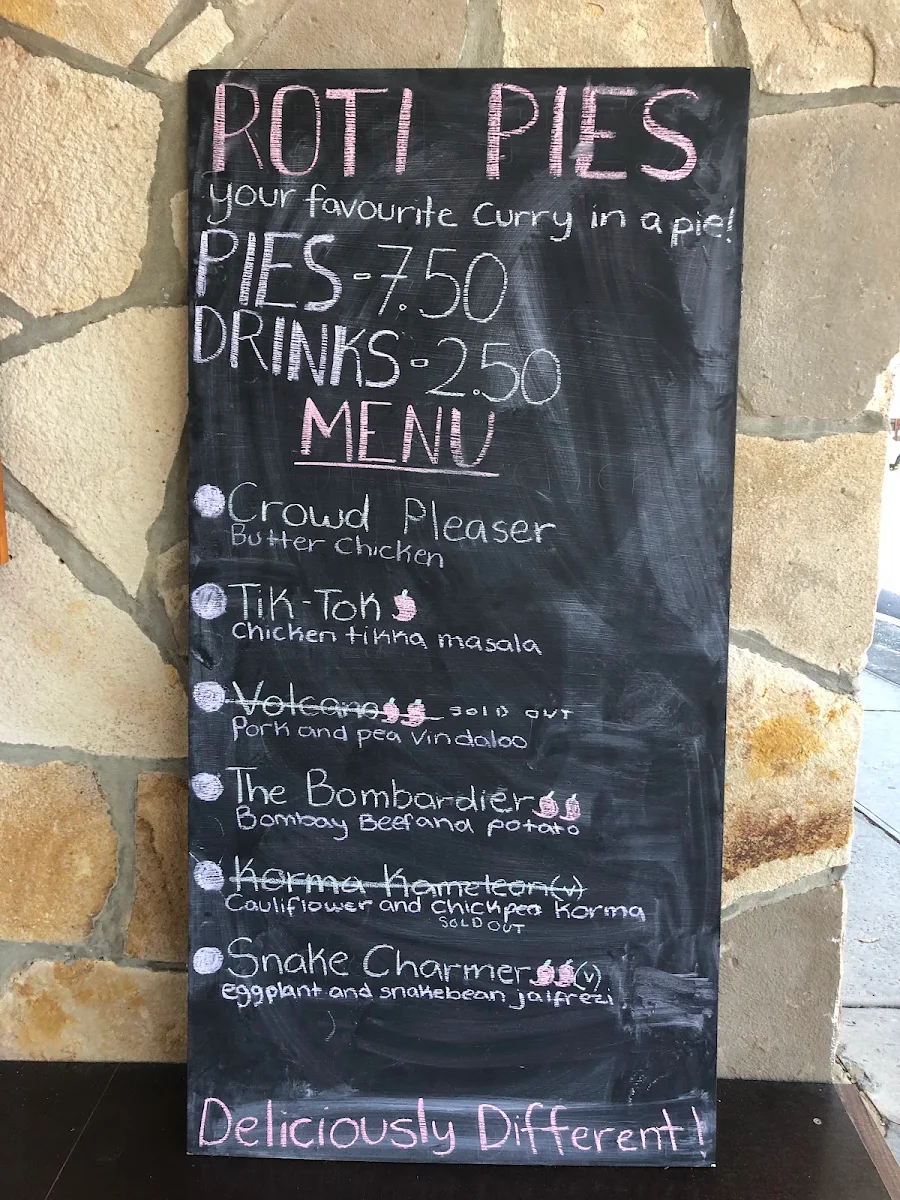 ROTI PIES
your favourite curry in a pie!
PIES - 7.50
DRINKS - 2.50
MENU
Crowd Pleaser
Butter Chicken
Tik-Tok
Chicken tikka masala
Volcano SOLD OUT
Pork and pea Vindaloo
The Bombardier
Bombay Beef and potato
Korma Kameleon (v)
Cauliflower and Chickpea Korma
SOLD OUT
Snake Charmer (v)
eggplant and snakebean jalfrezi
Deliciously Different!